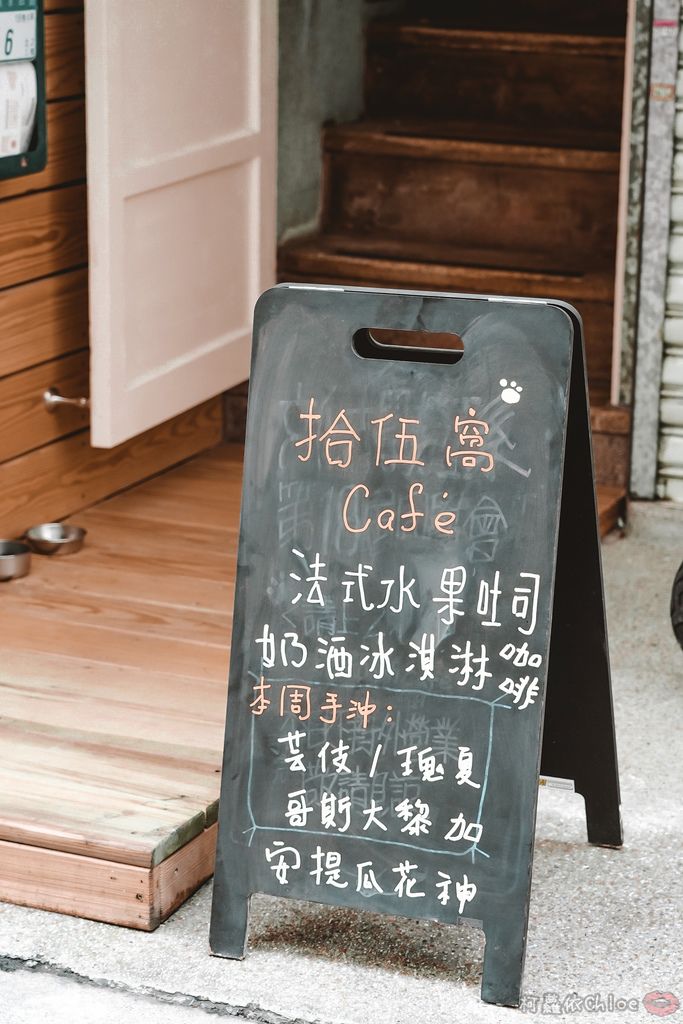 6
拾伍窩
Café
法式水果吐司
奶酒冰淇淋咖啡
本周手沖：
芸伎/瑰夏
哥斯大黎加
安提瓜花神
柯蠢依Chloe